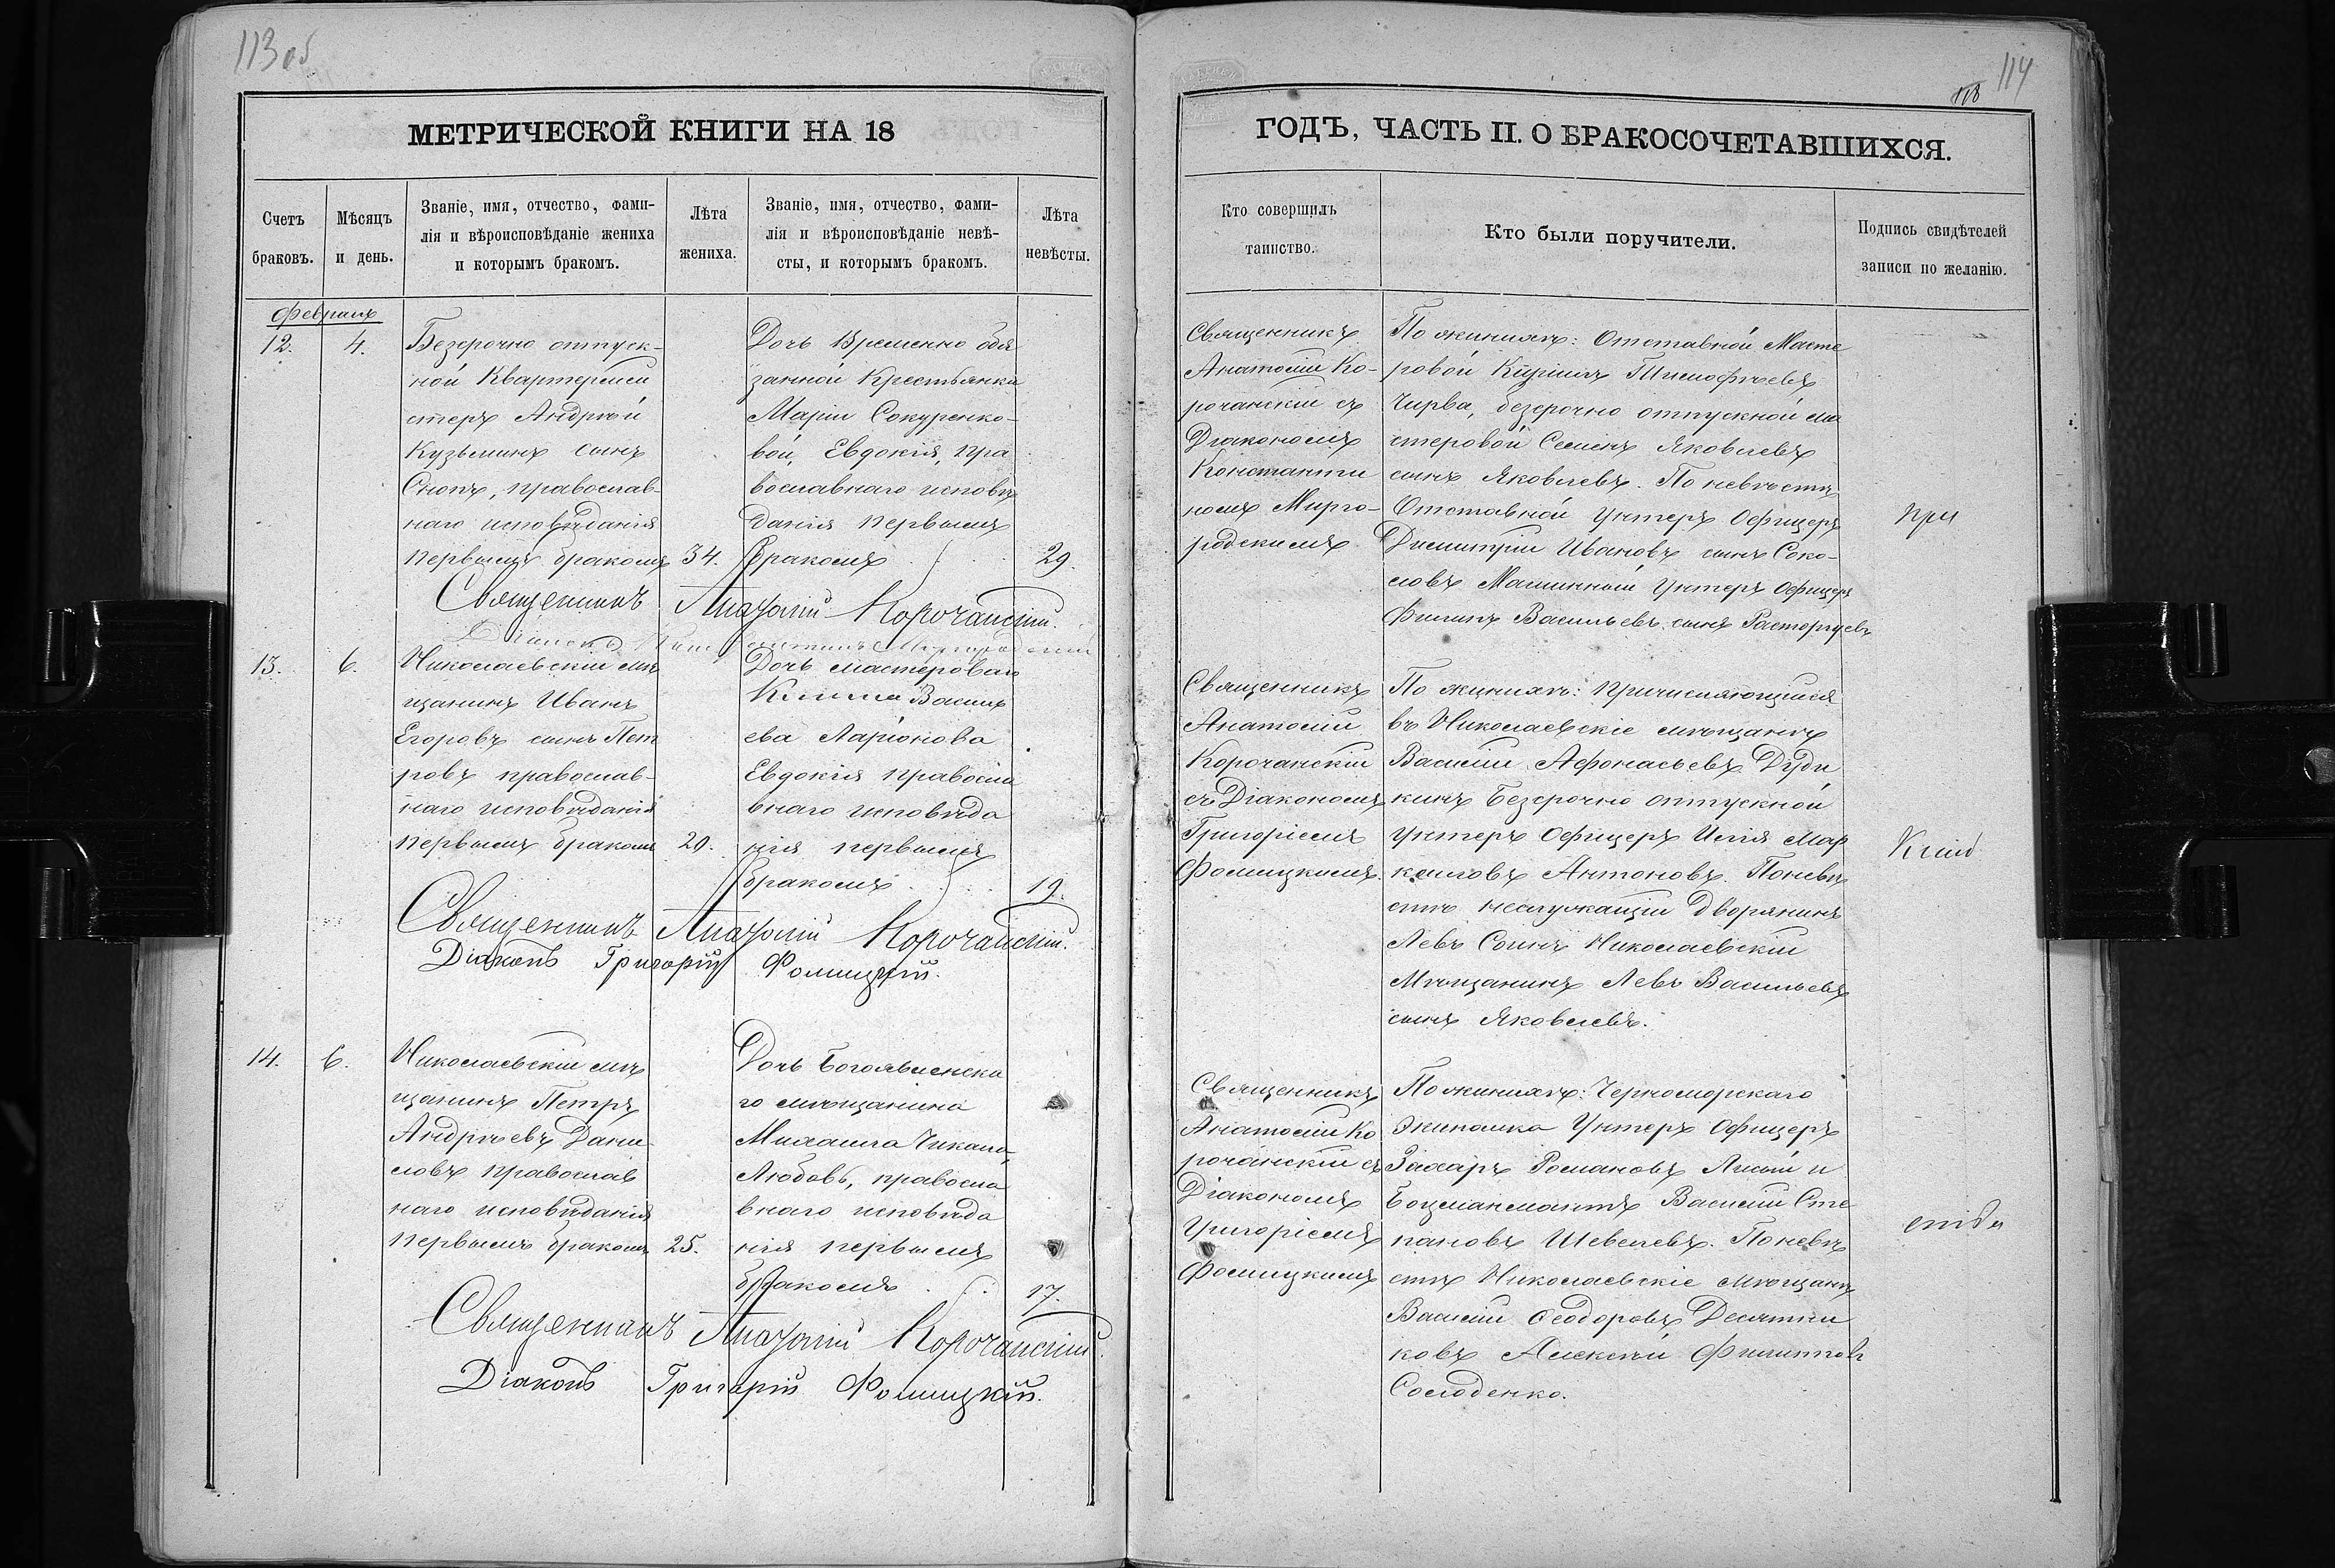 113 об
МЕТРИЧЕСКОЙ КНИГИ НА 18
Счетъ браковъ.
Мѣсяцъ и день.
Званіе, имя, отчество, фами-
лія и вѣроисповѣданіе жениха
и которымъ бракомъ.
Лѣта
жениха.
Званіе, имя, отчество, фами-
лія и вѣроисповѣданіе невѣ-
сты, и которымъ бракомъ.
Лѣта
невѣсты.
Февраль
12. 4.
Безсрочно отпуск-
ной Квартерми
стеръ Андрей
Кузьминъ сынъ
Снопъ, православ-
наго исповѣданія
первымъ бракомъ 34.
Дочь Временно обя
занной Крестьянки
Маріи Сокуренко-
вой, Евдокія, пра
вославнаго исповѣ
данія первымъ
бракомъ 29.
Священникъ Анатолій Корочанскій.
Діаконъ Константинъ Миргородскій
13. 6.
Николаевскій мѣ
щанинъ Иванъ
Егоровъ сынъ Пет
ровъ православ-
наго исповѣданія
первымъ бракомъ 20.
Дочь мастероваго
Клима Василь
ева Ларіонова
Евдокія правосла
внаго исповѣда
нія первымъ
бракомъ 19.
Священникъ Анатолій Корочанскій.
Діаконъ Григорій Фомицкій.
14. 6.
Николаевскій мѣ
щанинъ Петръ
Андреевъ Дани
ловъ православ
наго исповѣданія
первымъ бракомъ 25.
Дочь Богоявленска
го мѣщанина
Михаила Чикало,
Любовь, правосла
внаго исповѣда
нія первымъ
бракомъ 17.
Священникъ Анатолій Корочанскій.
Діаконъ Григорій Фомицкій.
114
118
ГОДЪ, ЧАСТЬ II. О БРАКОСОЧЕТАВШИХСЯ.
Кто совершилъ
таинство.
Кто были поручители.
Подпись свидѣтелей
записи по желанію.
Священникъ
Анатолій Ко-
рочанскій съ
Діакономъ
Константи
номъ Мирго-
родскимъ
По женихѣ: Отставной Масте
ровой Кирилъ Тимофѣевъ
Чирва, безсрочно отпускной ма
стеровой Семенъ Яковлевъ
сынъ Яковлевъ. По невѣстѣ
Отставной Унтеръ Офицеръ
Димитрій Ивановъ сынъ Соко-
ловъ Машинный Унтеръ Офицеръ
Филипъ Васильевъ сынъ Расторгуевъ
при
Священникъ
Анатолій
Корочанскій
съ Діакономъ
Григоріемъ
Фомицкимъ.
По женихѣ: Причисляющійся
въ Николаевскіе мѣщане
Василій Афонасьевъ Дуди
кинъ Безсрочно отпускной
Унтеръ Офицеръ Илія Мар
келовъ Антоновъ. По невѣ
стѣ неслужащій дворянинъ
Левъ Сокинъ Николаевскій
Мѣщанинъ Левъ Васильевъ
сынъ Яковлевъ.
Священникъ
Анатолій Ко
рочанскій съ
Діакономъ
Григоріемъ
Фомицкимъ
По женихѣ: Черноморскаго
Экипажа Унтеръ Офицеръ
Захаръ Романовъ Лисый и
Боцманматъ Василій Сте
пановъ Шевелевъ. По невѣ
стѣ Николаевскіе мѣщане
Василій Феодоровъ Десятни
ковъ Алексѣй Филиповъ
Солоденко.